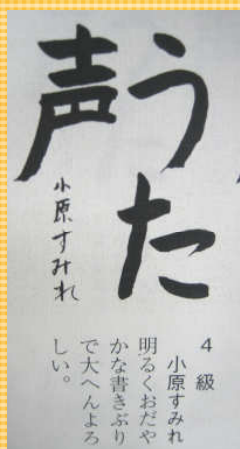 うた
声
小原すみれ
4級
小原すみれ
明るくおだや
かな書きぶり
で大へんよろ
しい。